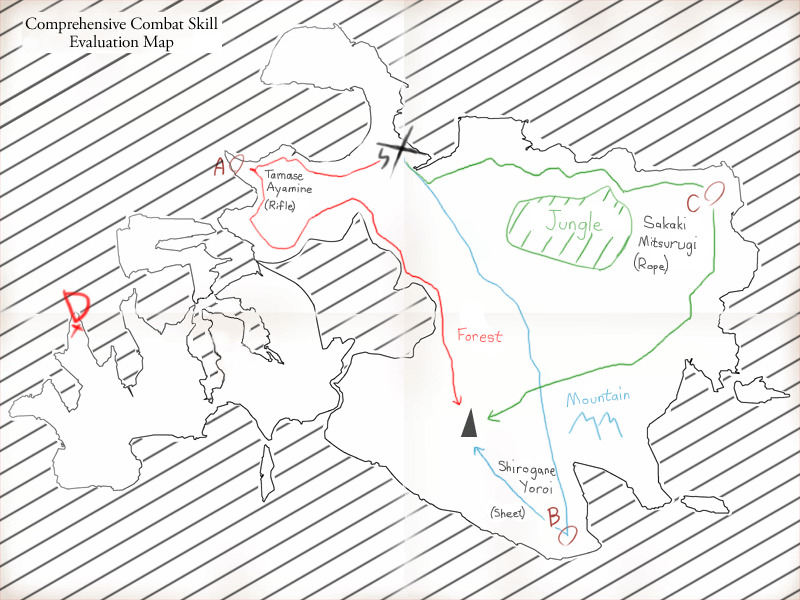 Comprehensive Combat Skill
Evaluation Map
A
Tamase
Ayamine
(Rifle)
C
Jungle
Sakaki
Mitsurugi
(Rope)
D
Forest
Mountain
Shirogane
Yoroi
(Sheet)
B